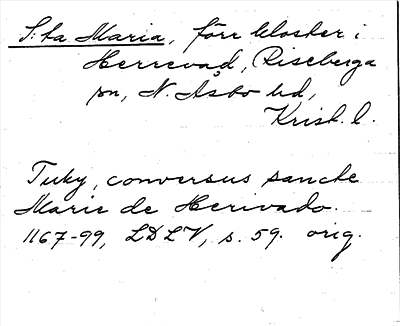 S:ta Maria, förr kloster i
Herrevad, Riseberga
sn, N. Åsbo hd,
Krist. l.
Tuky, conversus sancte
Marie de Herivado.
1167-99, LDLV, s. 59. orig.